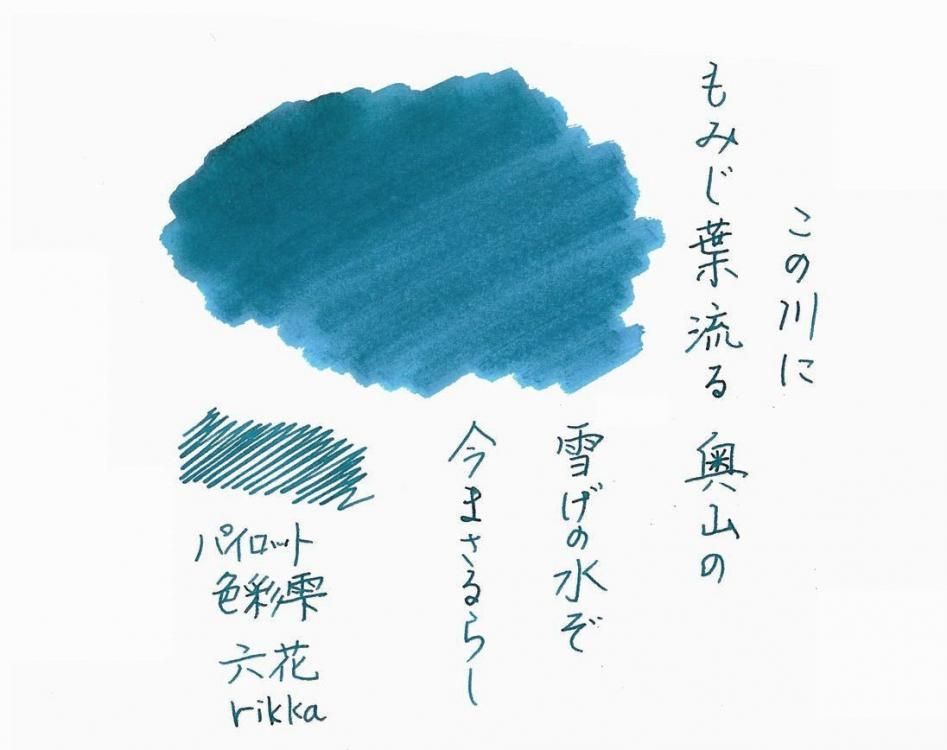 この川に
もみじ葉流る 奥山の
雪げの水ぞ
今まさるらし
パイロット
色彩雫
六花
rikka